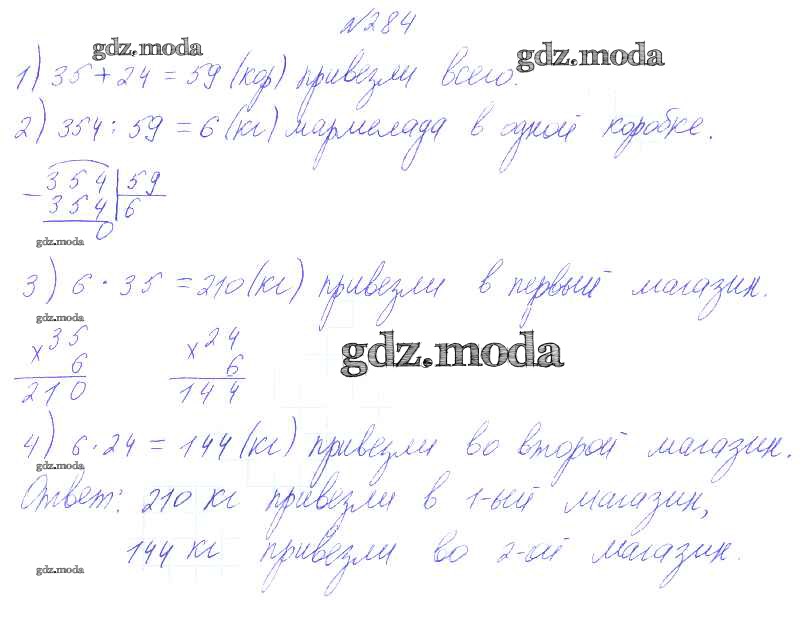 №284
gdz.moda
gdz.moda
1) 35 + 24 = 59 (кор) привезли всего.
2) 354 : 59 = 6 (кг) мармелада в одной коробке.
- 354 | 59
354 | 6
0
gdz.moda
3) 6 · 35 = 210 (кг) привезли в первый магазин.
gdz.moda
× 35
6
210
× 24
6
144
gdz.moda
4) 6 · 24 = 144 (кг) привезли во второй магазин.
gdz.moda
Ответ: 210 кг привезли в 1-ый магазин,
144 кг привезли во 2-ой магазин.
gdz.moda